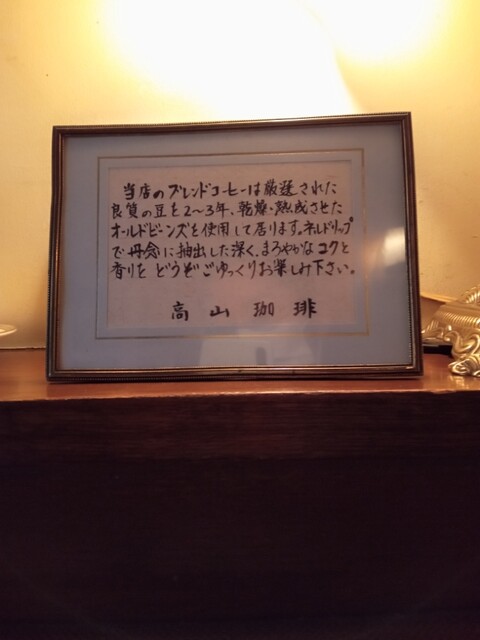 当店のブレンドコーヒーは厳選された
良質の豆を2〜3年、乾燥・熟成させた
オールドビーンズを使用して居ります。ネルドリップ
で丹念に抽出した深く、まろやかなコクと
香りを どうぞごゆっくりお楽しみ下さい。
高山珈琲